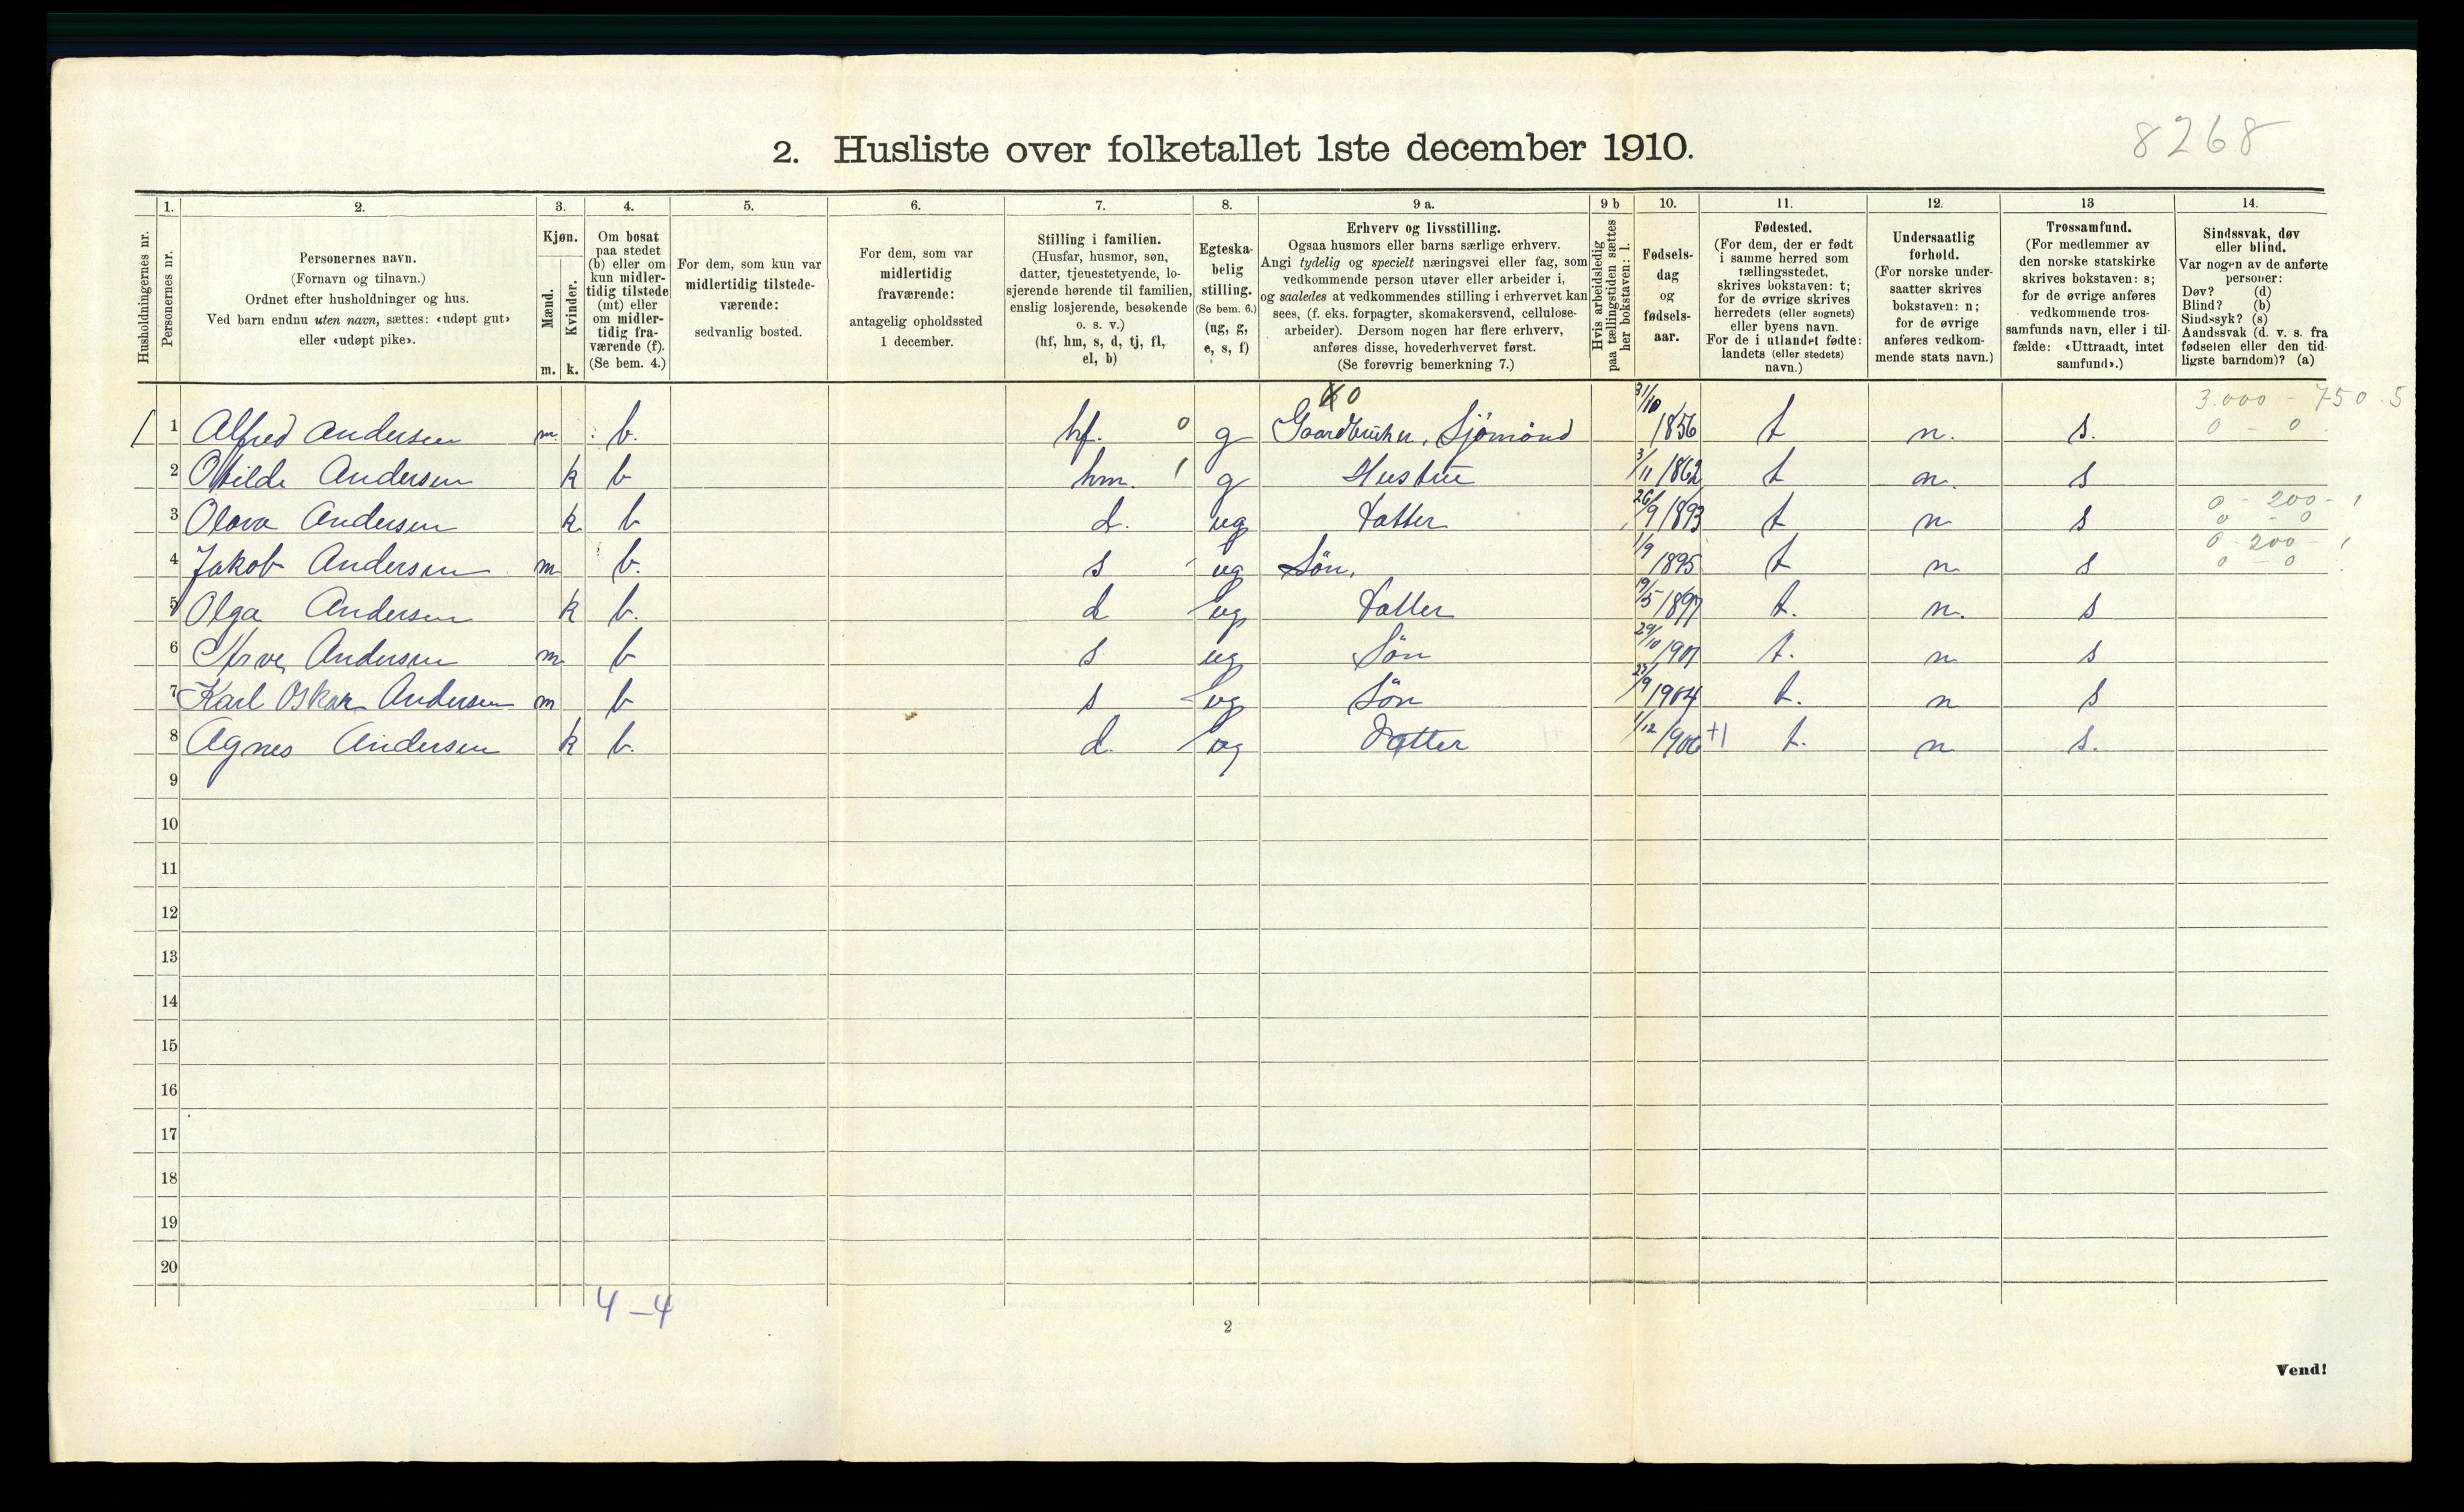 8268
2. Husliste over folketallet 1ste december 1910.
1. 2. 3. 4. 5. 6. 7. 8. 9 a. 9 b 10. 11. 12. 13 14.
Husholdningernes nr.
Personernes nr.
Personernes navn.
(Fornavn og tilnavn.)
Ordnet efter husholdninger og hus.
Ved barn endnu uten navn, sættes: «udøpt gut»
eller «udøpt pike».
Kjøn.
Mænd.
Kvinder.
m. k.
Om bosat
paa stedet
(b) eller om
kun midler-
tidig tilstede
(mt) eller
om midler-
tidig fra-
værende (f).
(Se bem. 4.)
For dem, som kun var
midlertidig tilstede-
værende:
sedvanlig bosted.
For dem, som var
midlertidig
fraværende:
antagelig opholdssted
1 december.
Stilling i familien.
(Husfar, husmor, søn,
datter, tjenestetyende, lo-
sjerende hørende til familien,
enslig losjerende, besøkende
o. s. v.)
(hf, hm, s, d, tj, fl,
el, b)
Egteska-
belig
stilling.
(Se bem. 6.)
(ug, g,
e, s, f)
Erhverv og livsstilling.
Ogsaa husmors eller barns særlige erhverv.
Angi tydelig og specielt næringsvei eller fag, som
vedkommende person utøver eller arbeider i,
og saaledes at vedkommendes stilling i erhvervet kan
sees, (f. eks. forpagter, skomakersvend, cellulose-
arbeider). Dersom nogen har flere erhverv,
anføres disse, hovederhvervet først.
(Se forøvrig bemerkning 7.)
Hvis arbeidsledig
paa tællingstiden sættes
her bokstaven: l.
Fødsels-
dag
og
fødsels-
aar.
Fødested.
(For dem, der er født
i samme herred som
tællingsstedet,
skrives bokstaven: t;
for de øvrige skrives
herredets (eller sognets)
eller byens navn.
For de i utlandet fødte:
landets (eller stedets)
navn.)
Undersaatlig
forhold.
(For norske under-
saatter skrives
bokstaven: n;
for de øvrige
anføres vedkom-
mende stats navn.)
Trossamfund.
(For medlemmer av
den norske statskirke
skrives bokstaven: s;
for de øvrige anføres
vedkommende tros-
samfunds navn, eller i til-
fælde: «Uttraadt, intet
samfund».)
Sindssvak, døv
eller blind.
Var nogen av de anførte
personer:
Døv? (d)
Blind? (b)
Sindssyk? (s)
Aandssvak (d. v. s. fra
fødselen eller den tid-
ligste barndom)? (a)
3.000 - 750.5
1 Alfred Andersen m. b. hf. 0 g Gaardbruker, Sjömand 31/10 1856 t n. s. 0 - 0
2 Andersen k b hm. 1 g Hustru 3/11 1862 t n. s
0 - 200 - 1
3 Olava Andersen k b d. ug Datter 26/9 1893 t n s 0 - 0
0 - 200 - 1
4 Jakob Andersen m b. s ug Sön. 1/9 1895 t n s 0 - 0
5 Olga Andersen k b. d ug Datter 19/5 1897 t. n. s
6 Andersen m b s ug Sön 29/10 1901 t. n s
7 Karl Oskar Andersen m b s ug Sön 1904 t. n s
8 Agnes Andersen k b. d. ug Datter 1/12 1906 +1 t. n s.
9
10
11
12
13
14
15
16
17
18
19
20
4 - 4
2
Vend!